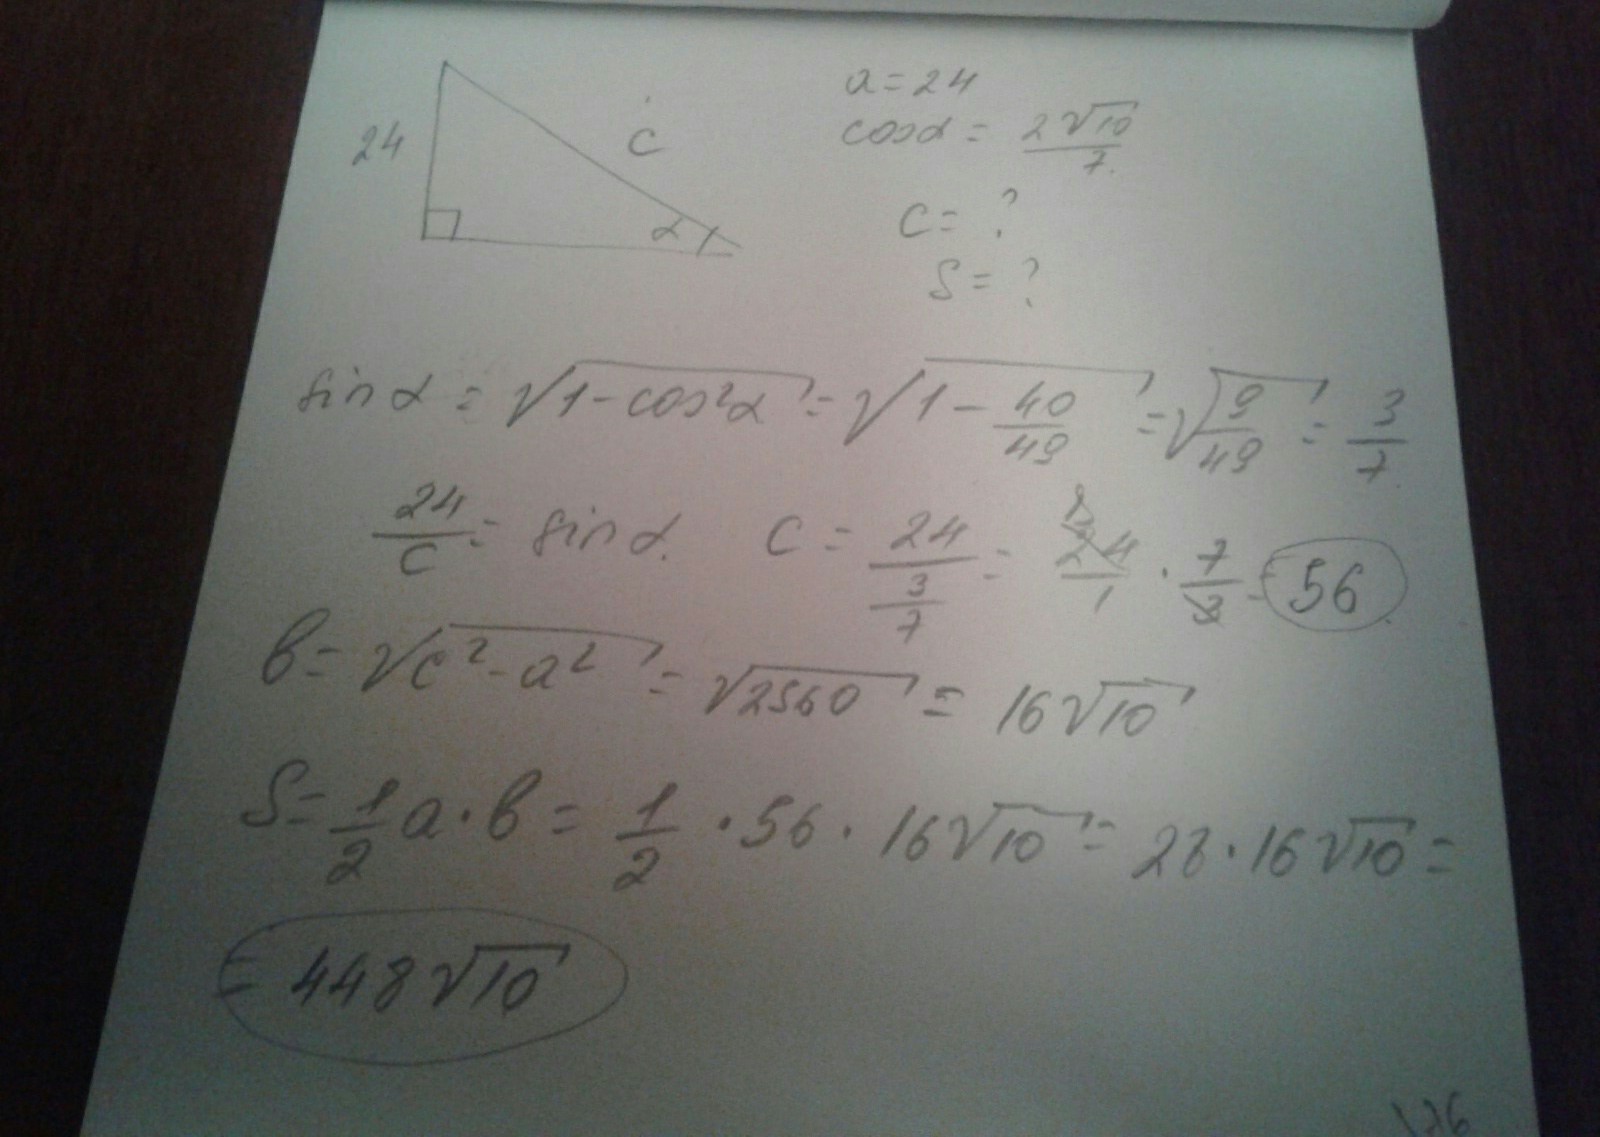 24
c
α
a=24
cosα = 2√10/7
c= ?
S= ?
sinα = √(1-cos²α) = √(1 - 40/49) = √(9/49) = 3/7
24/c = sinα. c = 24/(3/7) = 8 24/1 · 7/3 = 56
b= √(c²-a²) = √2560 = 16√10
S= 1/2 a·b = 1/2 · 56 · 16√10 = 28·16√10 =
= 448√10